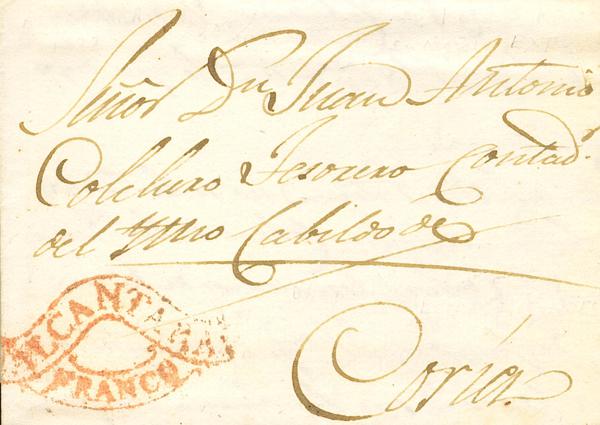 Señor Dn Juan Antonio
Colchero Tesorero Contadr.
del Ylmo Cabildo de
Coria.
ALCANTARA
FRANCO